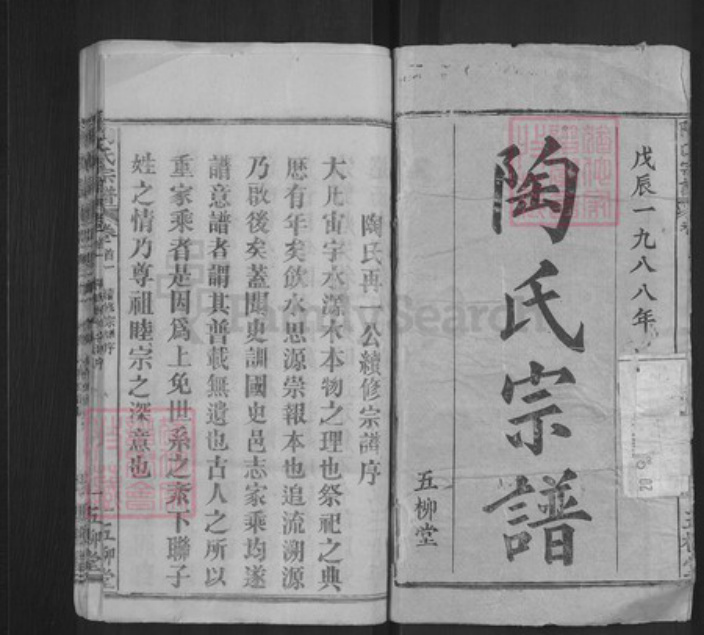 戊辰一九八八年
陶氏宗譜
五柳堂
陶氏再 公續修宗譜序
大凡宙宇水源木本物之理也祭祀之典
歷有年矣飲水思源崇報本也追流溯源
乃啟後矣蓋聞史訓國史邑志家乘均遂
譜意譜者謂其普載無遺也古人之所以
重家乘者是因為上免世系之紊下聯子
姓之情乃尊祖睦宗之深意也
氏宗譜
五柳堂
FamilySearch